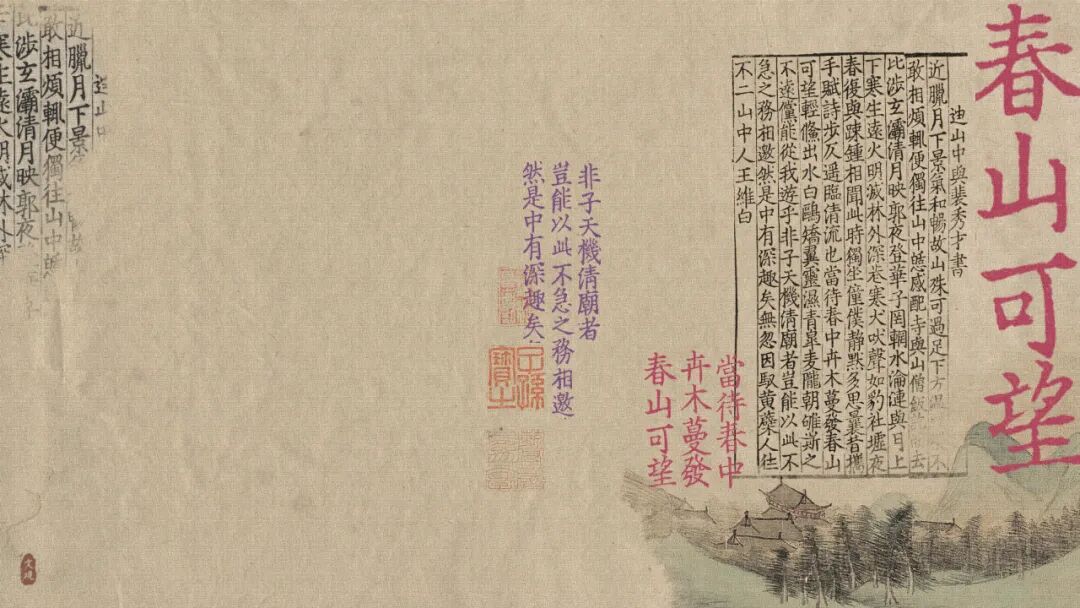 春山可望
迪山中與裴秀才書
近臘月下景氣和暢故山殊可過足下方溫不
敢相煩輒便獨往山中憩感配寺與山僧飯訖去
比涉玄灞清月映郭夜登華子岡輞水淪漣與月上
下寒生遠火明滅林外深巷寒犬吠聲如豹社墟夜
舂復與疎鍾相聞此時獨坐僮僕靜默多思曩昔攜
手賦詩步仄逕臨清流也當待春中卉木蔓發春山
可望輕鯈出水白鷗矯翼露濕青皋麥隴朝雊斯之
不遠儻能從我遊乎非子天機清廟者豈能以此不
急之務相邀然是中有深趣矣無忽因馭黃蘗人往
不二山中人王維白
當待春中
卉木蔓發
春山可望
非子天機清廟者
豈能以此不急之務相邀
然是中有深趣矣
迪山中
近臘月下景
敢相煩輒便獨往山中憩
比涉玄灞清月映郭夜
寒生遠火明滅林外